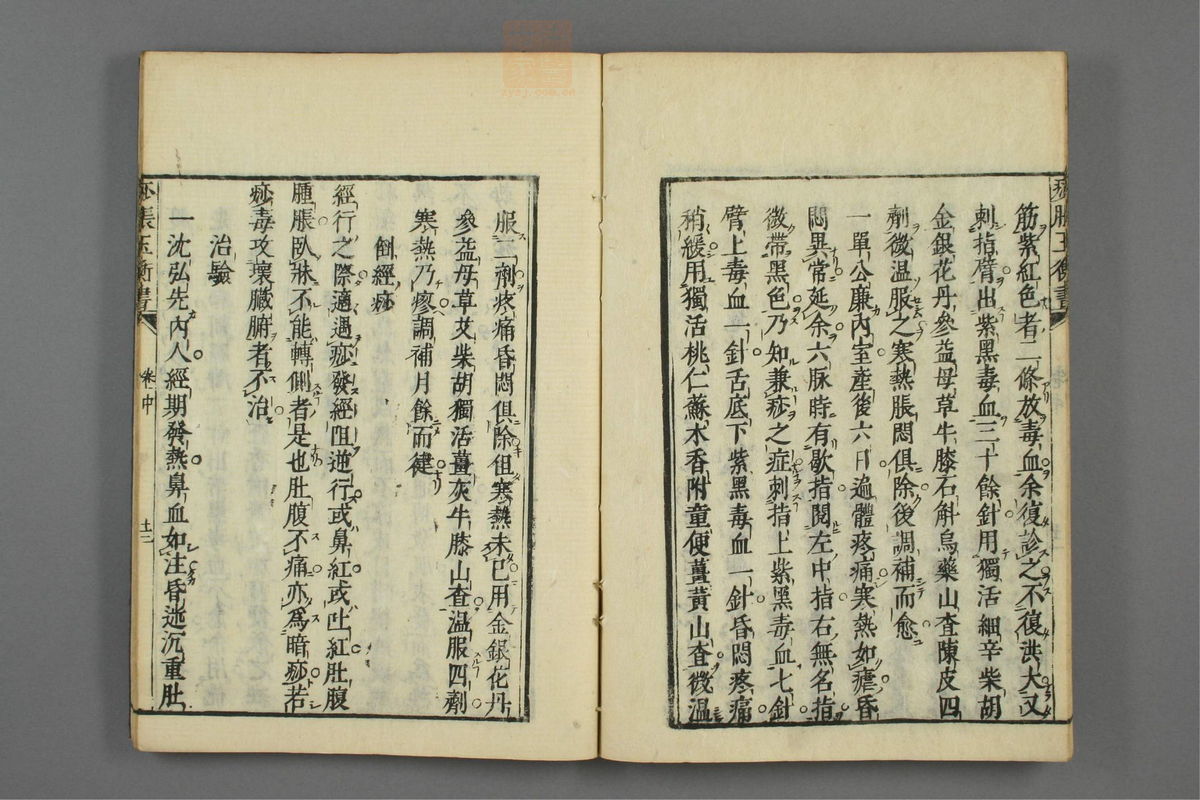 筋紫紅色者二條放毒血余復診之不復洪大又
刺指臂出紫黑毒血三十餘針用獨活細辛柴胡
金銀花丹參益母草牛膝石斛烏藥山查陳皮四
劑微温服之寒熱脹悶俱除後調補而愈
一單公廉內室產後六日遍體疼痛寒熱如瘧昏
悶異常延余六脉時有歇指閱左中指右無名指
微帶黑色乃知兼痧之症刺指上紫黑毒血七針
臂上毒血一針舌底下紫黑毒血一針昏悶疼痛
稍緩用獨活桃仁蘇木香附童便薑黃山查微温
服一劑疼痛昏悶俱除但寒熱未已用金銀花丹
參益母草艾柴胡獨活薑灰牛膝山查温服四劑
寒熱乃瘳調補月餘而健
倒經痧
經行之際適遇痧發經阻逆行或鼻紅或吐紅肚腹
腫脹臥牀不能轉側者是也肚腹不痛亦為暗痧若
痧毒攻壞臟腑者不治
治驗
一沈弘先內人經期發熱鼻血如注昏迷沉重肚
卷中
十二